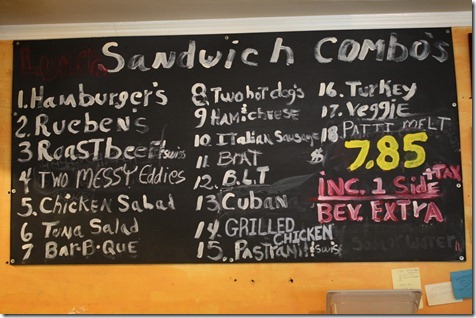 Lunch Sandwich Combo's
1. Hamburger's
2 Rueben's
3 Roast beef + swiss
4 Two Messy Eddies
5. Chicken Salad
6 Tuna Salad
7 Bar-B-Que
8. Two hot dog's
9 Ham + cheese
10 Italian Sausage
11 Brat
12. B.L.T
13 Cuban
14 Grilled Chicken
15. Pastrami + swiss
16. Turkey
17. Veggie
18 Patti Melt
$ 7.85
+ TAX
inc. 1 Side
Bev. Extra